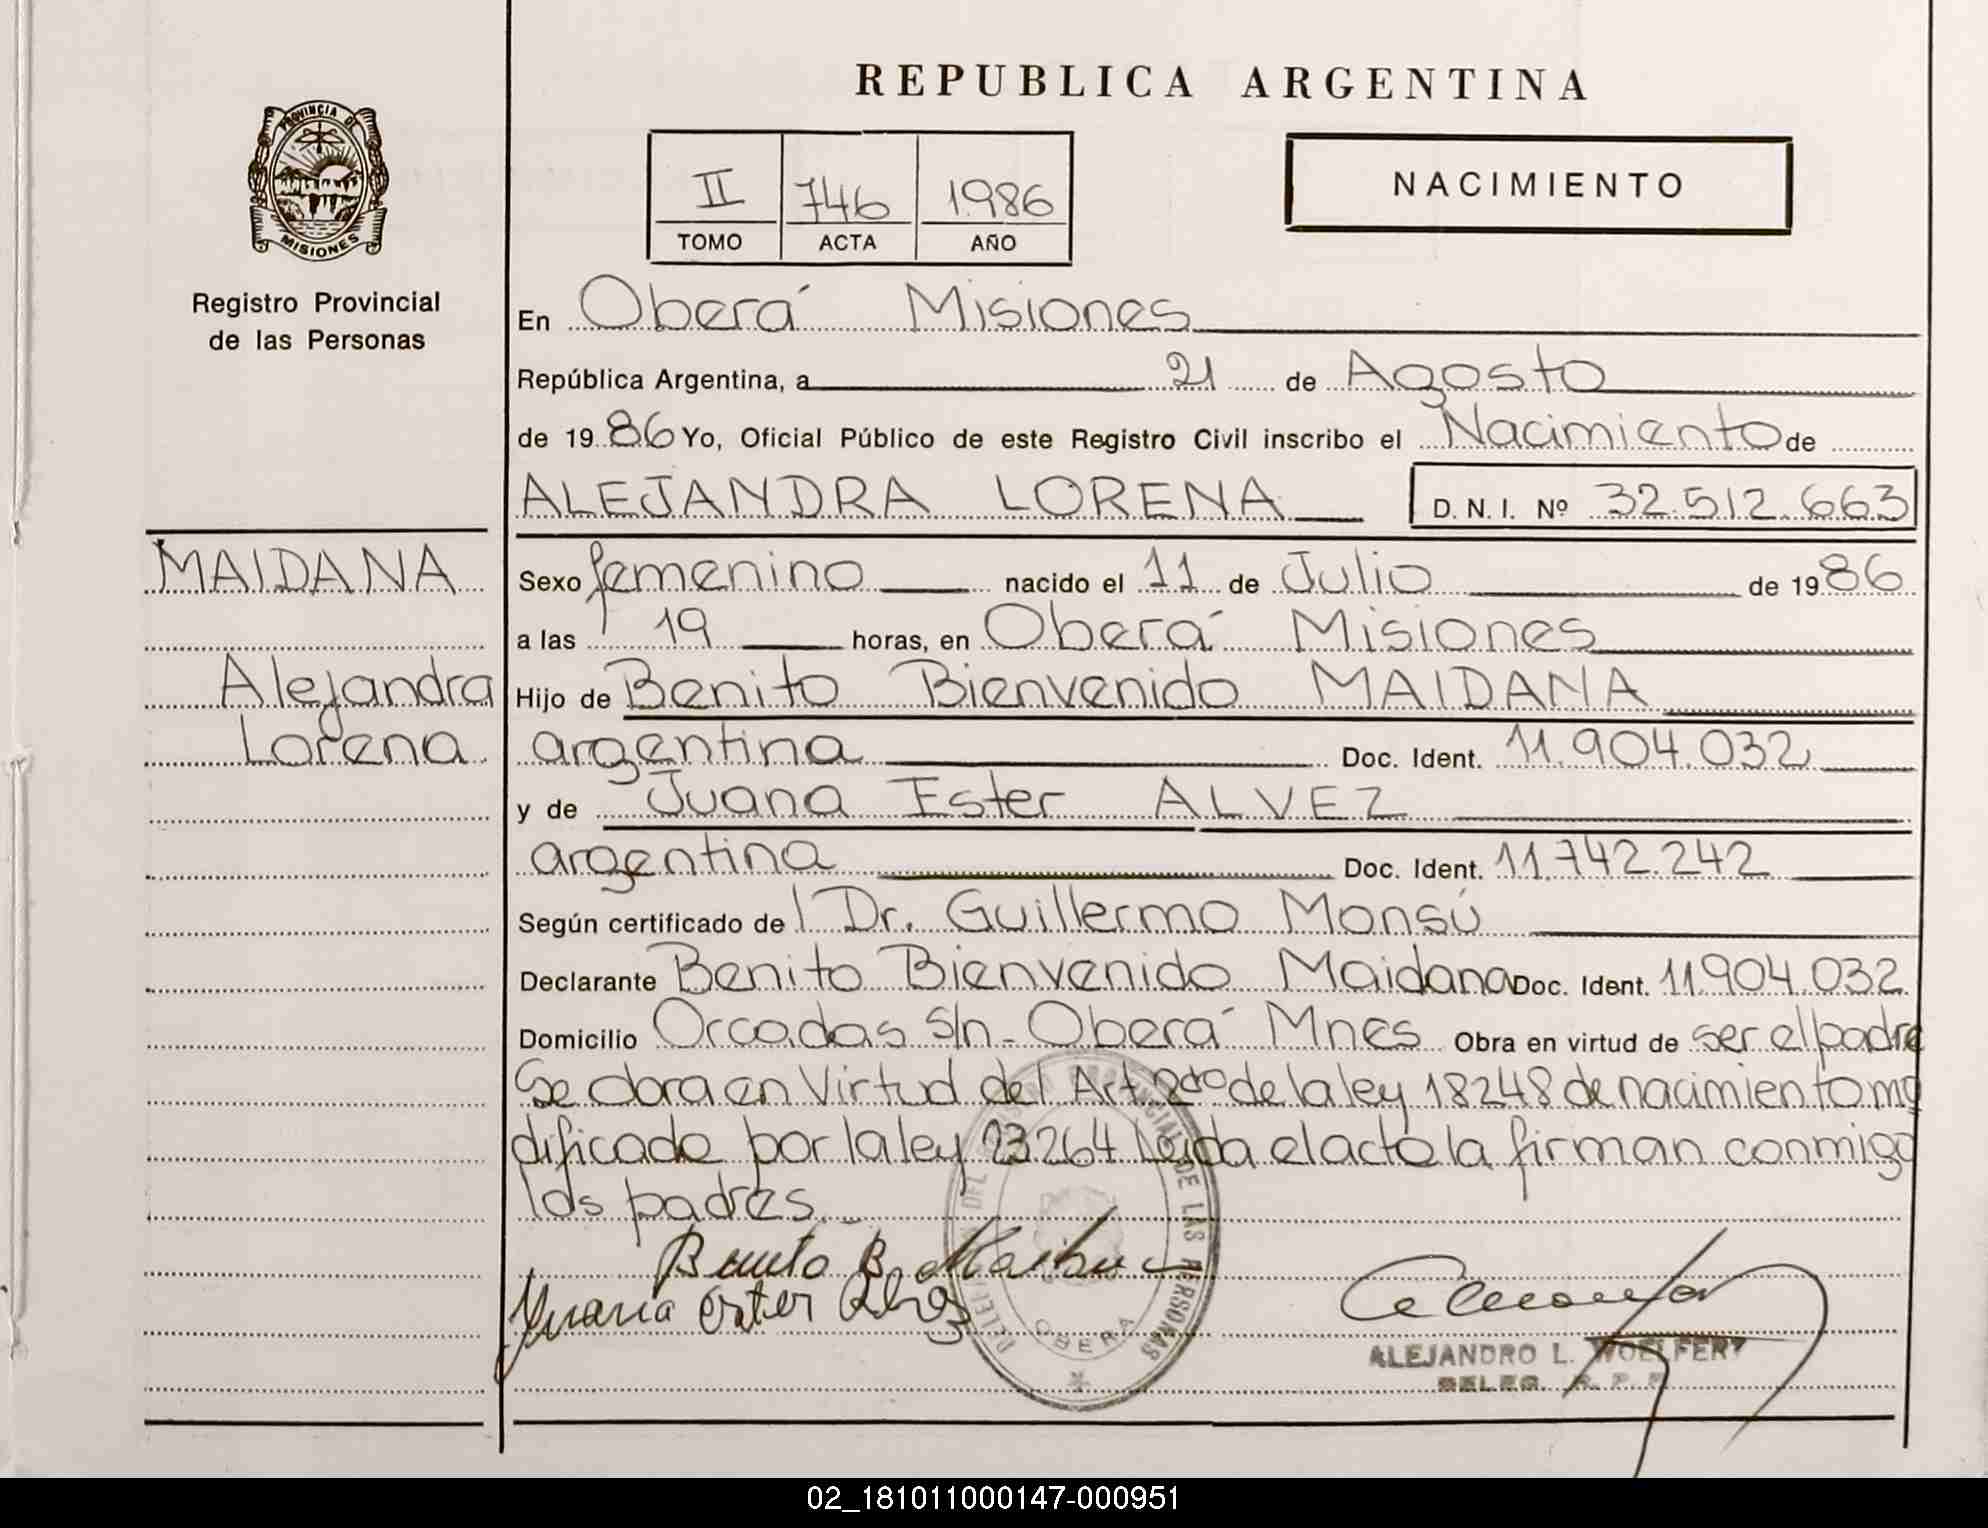 REPUBLICA ARGENTINA
PROVINCIA DE
MISIONES
Registro Provincial
de las Personas
II 746 1986
TOMO ACTA AÑO
NACIMIENTO
En Oberá Misiones
República Argentina, a 21 de Agosto
de 1986 Yo, Oficial Público de este Registro Civil inscribo el Nacimiento de
ALEJANDRA LORENA D. N. I. Nº 32.512.663
MAIDANA
Alejandra
Lorena
Sexo femenino nacido el 11 de Julio de 1986
a las 19 horas, en Oberá Misiones
Hijo de Benito Bienvenido MAIDANA
argentina Doc. Ident. 11.904.032
y de Juana Ester ALVEZ
argentina Doc. Ident. 11.742.242
Según certificado de l Dr. Guillermo Monsú
Declarante Benito Bienvenido Maidana Doc. Ident. 11.904.032
Domicilio Orcadas s/n - Oberá Mnes Obra en virtud de ser el padre
Se obra en Virtud del Art 2do de la ley 18248 de nacimiento mo
dificado por la ley 23264 Leida el acta la firman conmigo
los padres.
Benito B Maidana
Juana Ester Alvez
DEL REGISTRO PROVINCIAL DE LAS PERSONAS
OBERA
ALEJANDRO L. WOELFERT
DELEG. R. P. P.
02_181011000147-000951